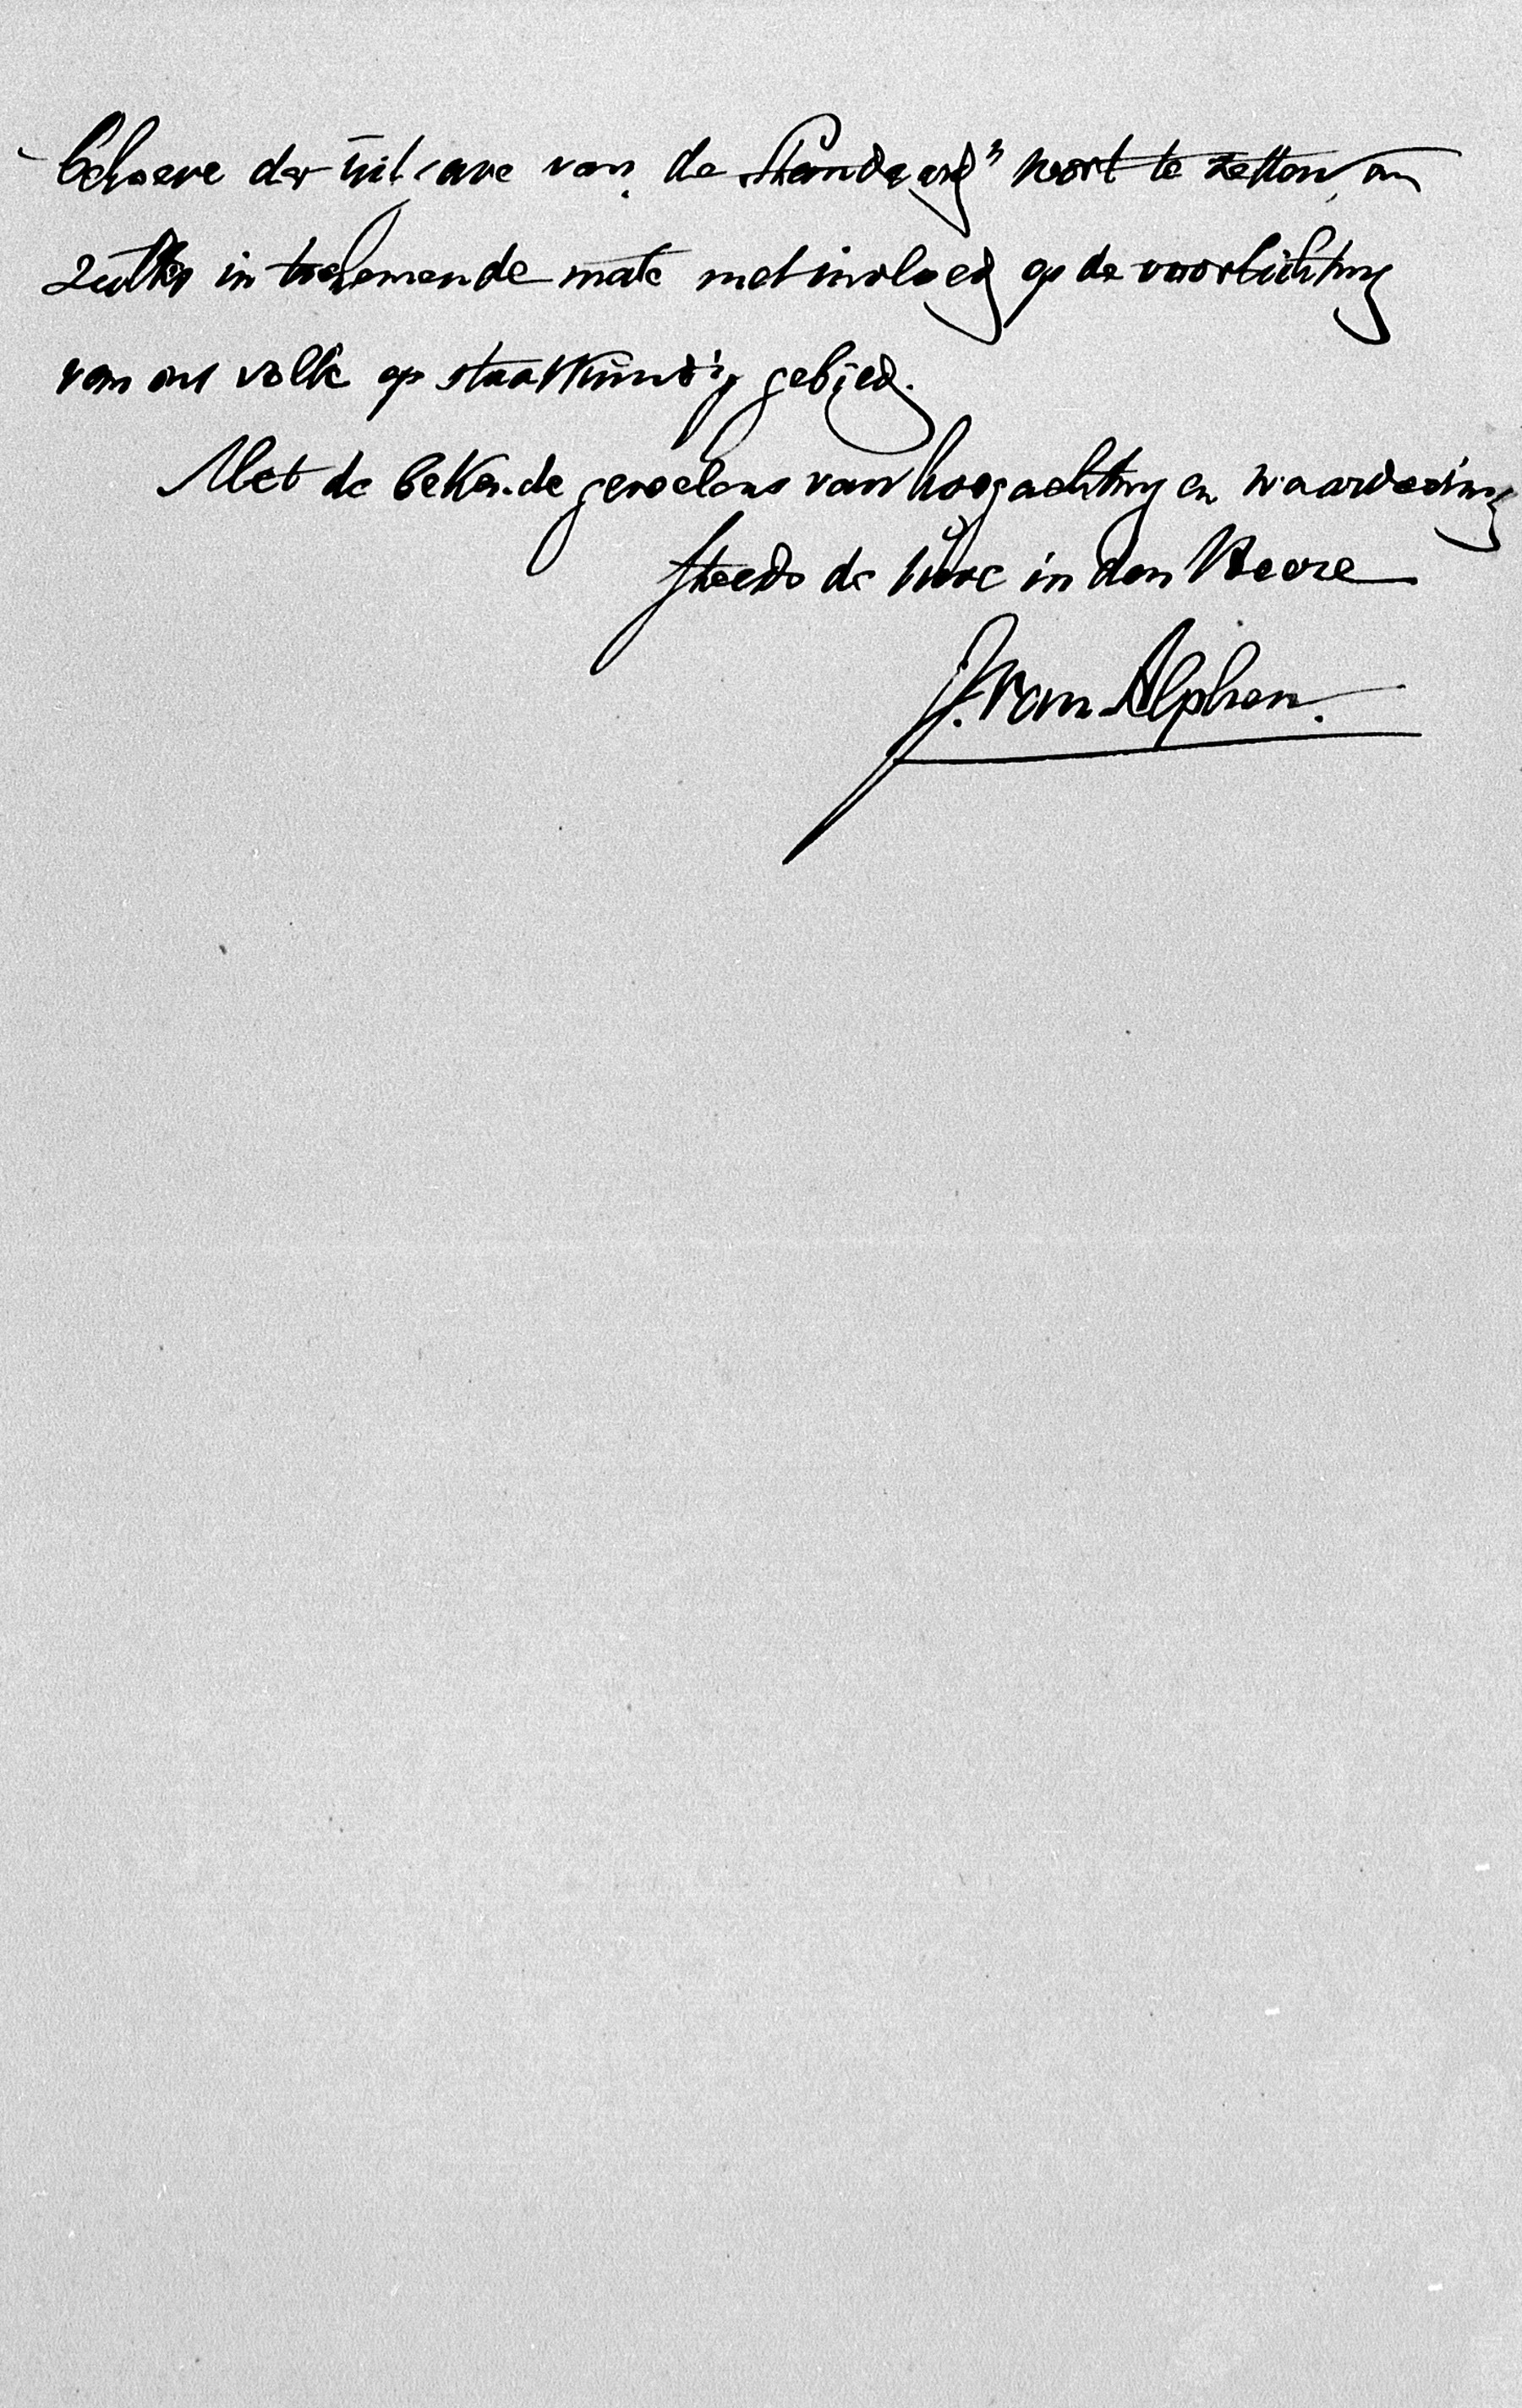 behoeve der uitgave van de Standaard" voort te zetten, en
zulks in toenemende mate met invloed op de voorlichting
van ons volk op staatkundig gebied.
Met de bekende gevoelens van hoogachting en waardeering
steeds de Uwe in den Heere
J. van Alphen.